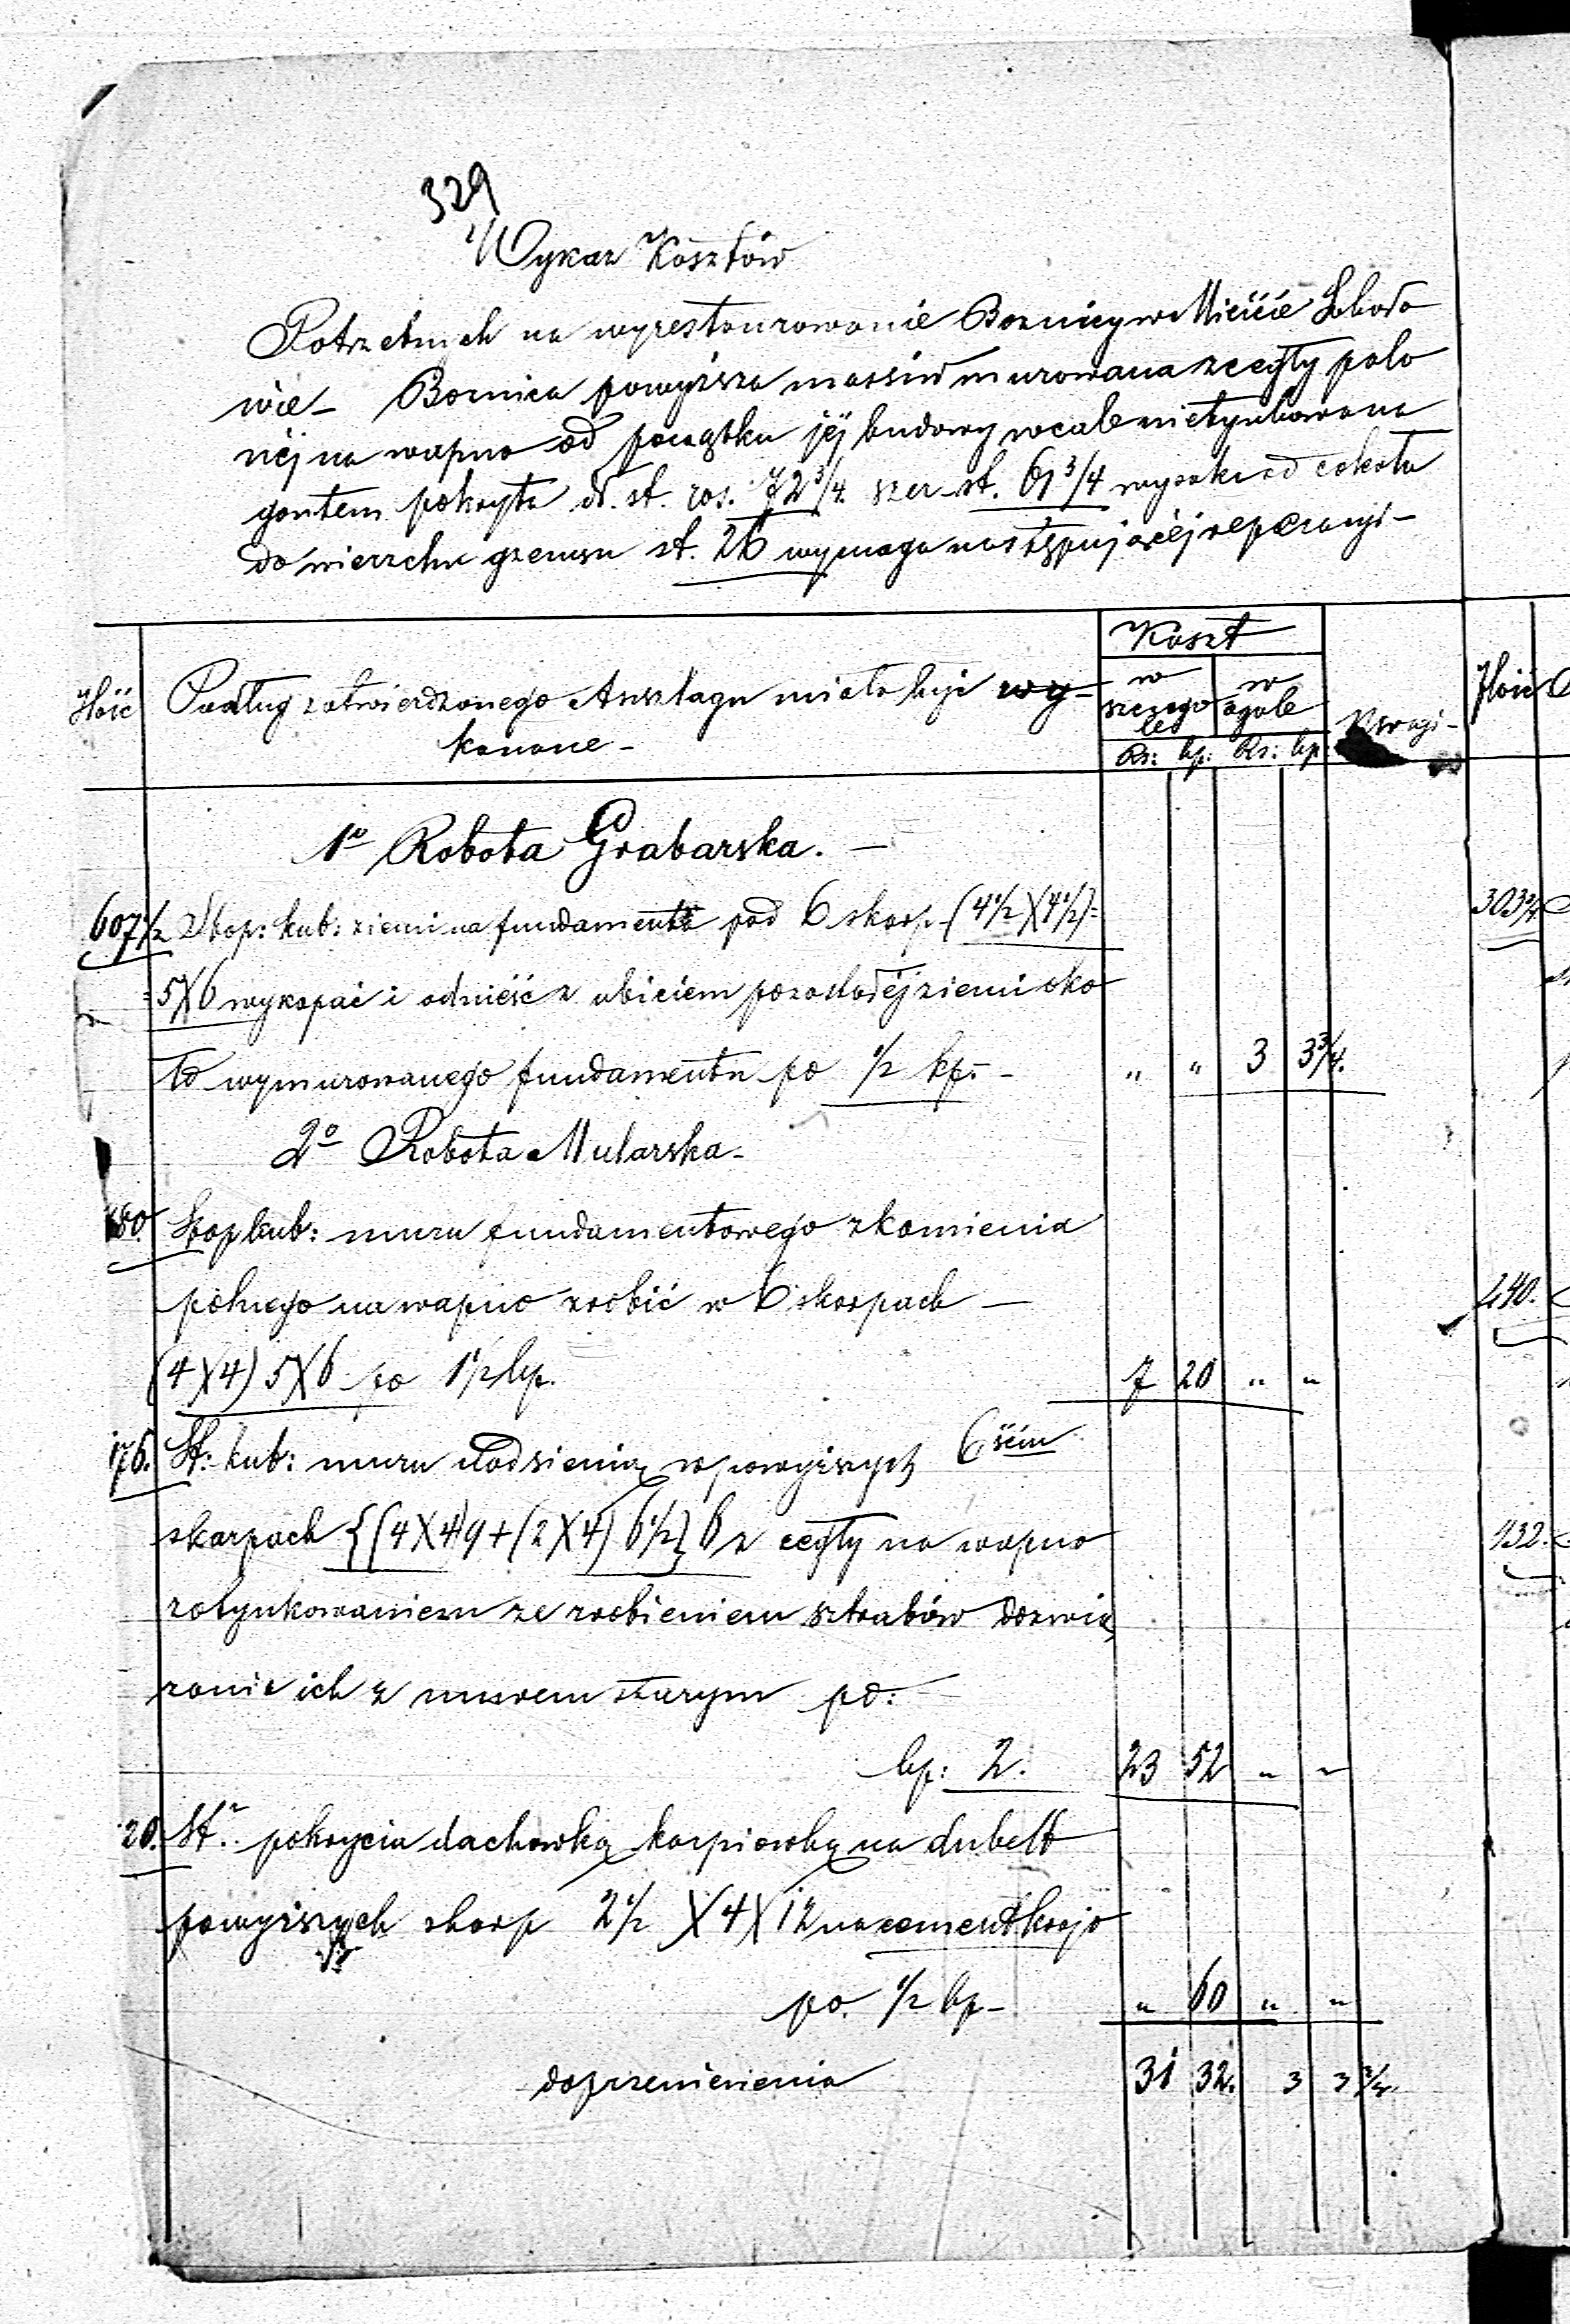 329
Wykaz Kosztów
Potrzebnych na wyrestaurowanie Boznicy w Mieście Sobodo
wie – Boznica powyższa massiw murowana z cegły palo
néj na wapno od początku jéj budowy wcale nietynkowana
gontem pokryta dł. st. ros. 72 3/4 szer. st. 61 3/4 wysoka od cokołu
do wierzchu gzemsu st. 26 wymaga następującéj reperacyi –
Ilość
Podług zatwierdzonego Anszlagu miało być wy-
konane –
Koszt
w szczegó le
w ogóle
Rs: kp: Rs: kp:
Uwagi –
Ilość
1º Robota Grabarska. –
607 1/2 Stop: kub: ziemi na fundamenta pod 6 skarp (4 1/2 X 4 1/2) =
= 5X6 wykopać i odnieść z ubiciem pozostałéj ziemi oko
ło wymurowanego fundamentu po 1/2 kp. – " " 3 3 3/4.
303 3/4
2º Robota Mularska –
480. Stop kub: muru fundamentowego z kamienia
polnego na wapno zrobić w 6 skarpach –
240.
(4X4) 5X6 po 1 1/2 kp. 7 20 " "
St: kub: muru nadziemią w powyższych 6ściu
skarpach {(4X4)9+(2X4) 6 1/2} 6 z cegły na wapno
132.
zotynkowaniem ze zrobieniem sztrabów do zwią
zania ich z murem starym po:
kp: 2. 23 52 " "
120. St. pokrycia dachówką karpiówką na dubelt
powyższych skarp 2 1/2 X 4 X 12 na cement krajo
po. 1/2 kp – " 60 " "
do przeniesienia 31 32. 3 3 3/4.